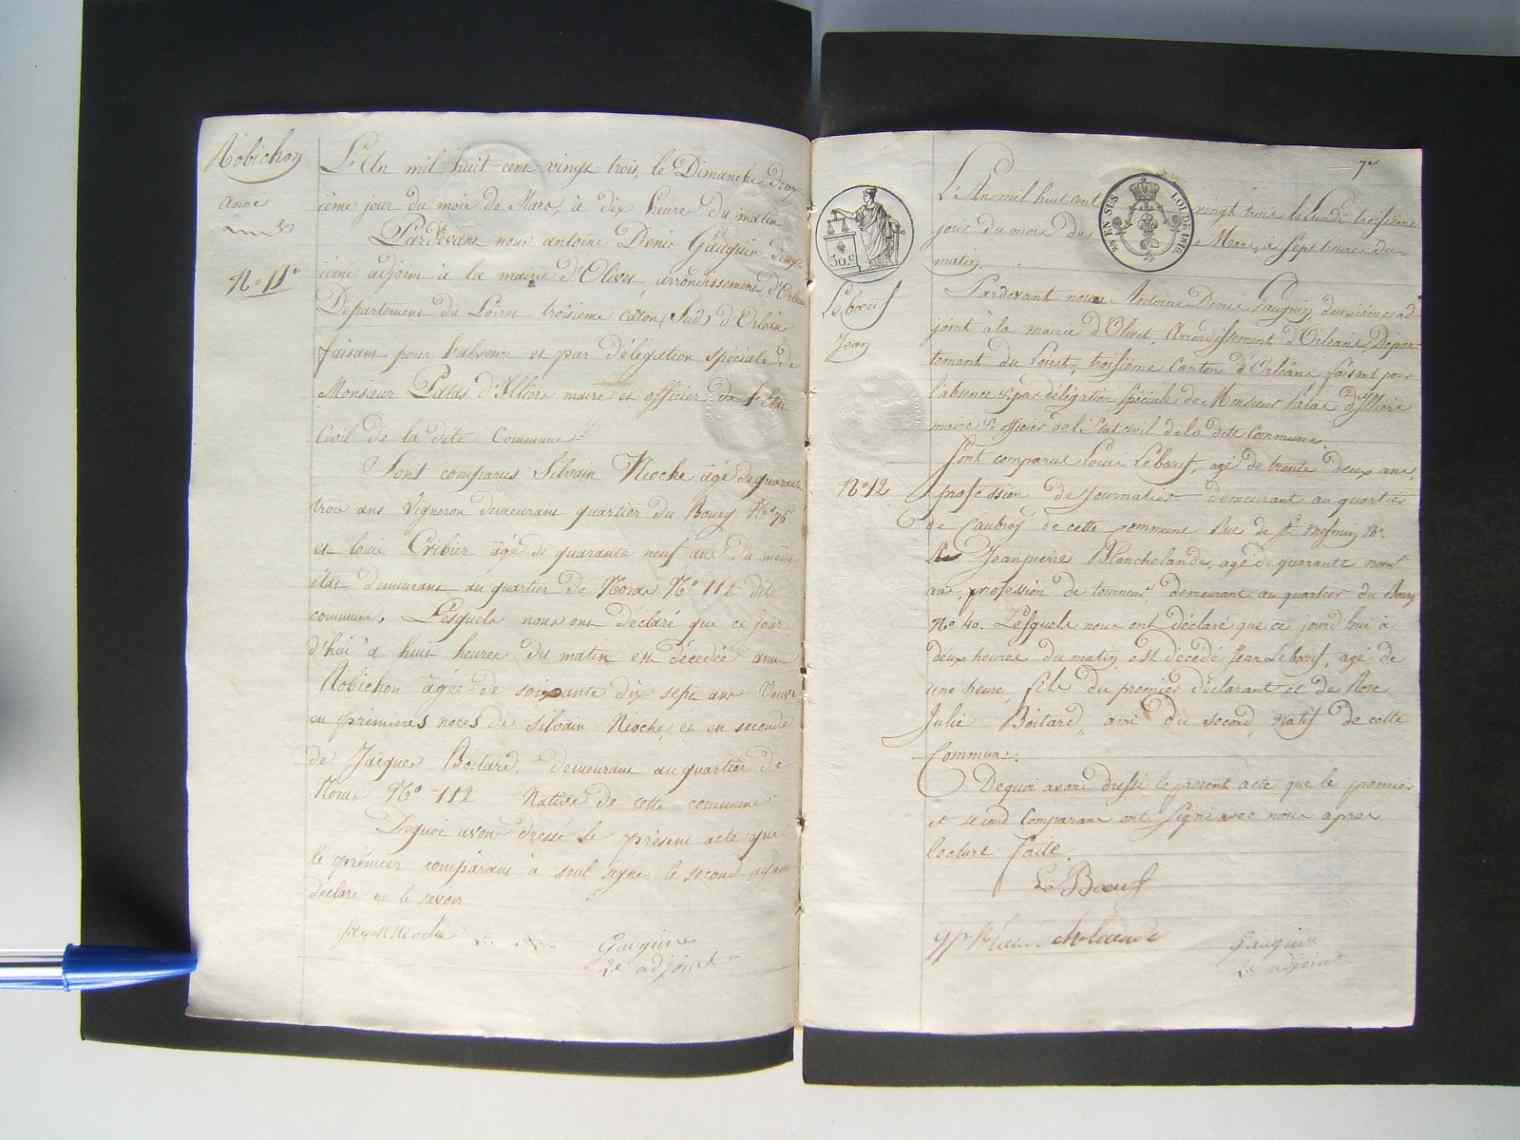 Robichon
anne
N.° 11.
L'An mil huit cent vingt trois, le Dimanche deux
ième jour du mois de Mars, à dix heure du matin
Pardevant nous antoine Denis Gauguin deux
ième adjoint à la mairie d'Olivet, arrondissement d'Orléans
Département du Loiret troisième canton (Sud) d'Orléans
faisant pour l'absence et par délégation spéciale de
Monsieur Patas d'Illiers maire et officier de l'Etat
Civil de la dite Commune
Sont comparus Silvain Neoche âgé de quarante
trois ans Vigneron demeurant quartier du Bourg N° 76
et louis Cribier âgé de quarante neuf ans du même
état demeurant au quartier de N° 112 dite
commune, Lesquels nous ont déclaré que ce jour
d'hui à huit heures du matin est décédée anne
Robichon âgée de soixante dix sept ans Veuve
en premieres noces de Silvain Neoche, et en seconde
de Jacques Boitard, demeurant au quartier de
N° 112 Native de cette commune
Dequoi avons dressé le présent acte que
le premier comparant à seul signé le second ayant
déclaré ne le savoir
Gauguin
2e adjoint
7e
50 c
LOI DE 1816
Le bœuf
Jean
N° 12
L'An mil huit cent vingt trois le Lundi troisième
jour du mois de Mars, à sept heures du
matin.
Pardevant nous Antoine Denis Gauguin deuxième ad
joint à la mairie d'Olivet, Arrondissement d'Orléans, Dépar-
tement du Loiret, troisième Canton d'Orléans faisant pour
l'absence et par délégation speciale de Monsieur Patas d'Illiers
maire et officier de l'Etat civil de la dite Commune,
Sont comparus Louis Lebœuf, agé de trente deux ans,
profession de Journalier demeurant au quartier
de Caubray de cette commune Rue de St Mesmin N°.
Jeanpierre Blanchelande, agé de quarante neuf
ans, profession de tourneur demeurant au quartier du Bourg
N° 40. Lesquels nous ont déclaré que ce jourd'hui à
deux heures du matin est décédé Jean Lebœuf, agé de
une heure, fils du premier déclarant et de Rose
Julie Boitard, ami du second, natif de cette
Commune.
Dequoi avons dressé le present acte que le premier
et second Comparant ont Signé avec nous apres
lecture faite.
Le Bœuf
Gauguin
2e adjoint